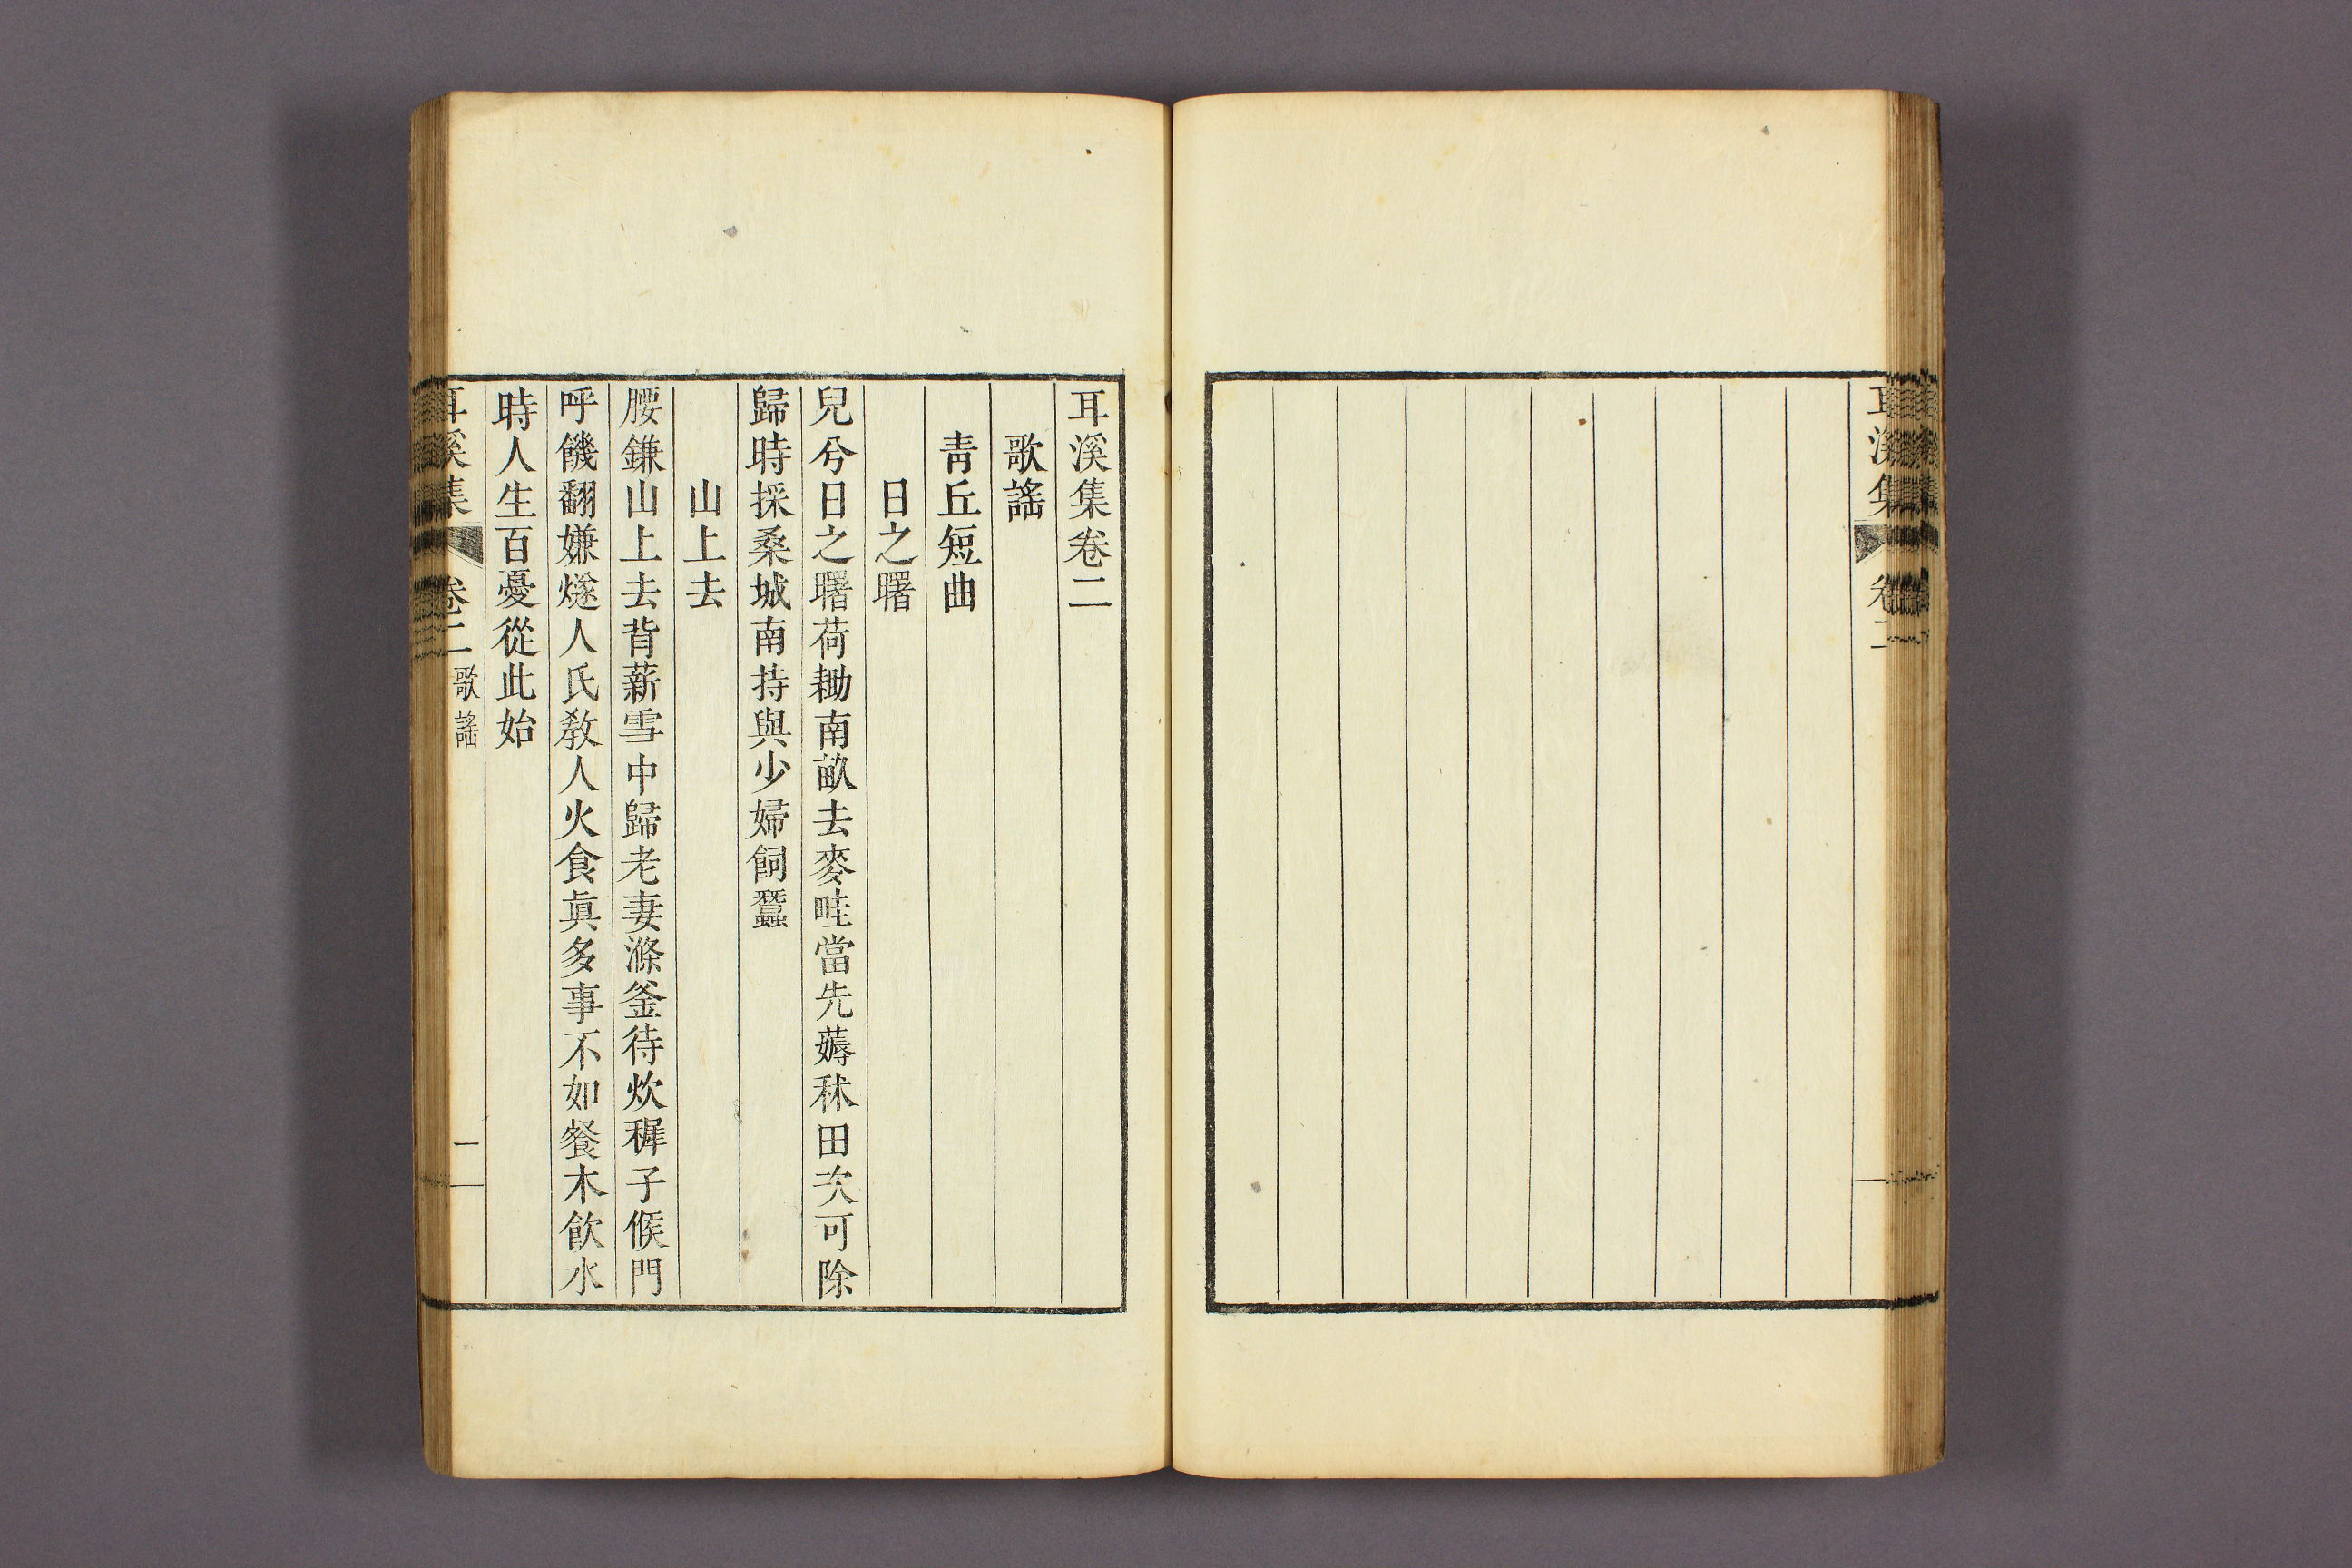 耳溪集
卷二
耳溪集卷二
歌謠
靑丘短曲
日之曙
兒兮日之曙荷耡南畝去麥畦當先薅秫田次可除
歸時採桑城南持與少婦飼蠶
山上去
腰鎌山上去背薪雪中歸老妻滌釜待炊穉子候門
呼饑翻嫌燧人氏敎人火食眞多事不如餐木飮水
時人生百憂從此始
耳溪集
卷二
歌謠
一